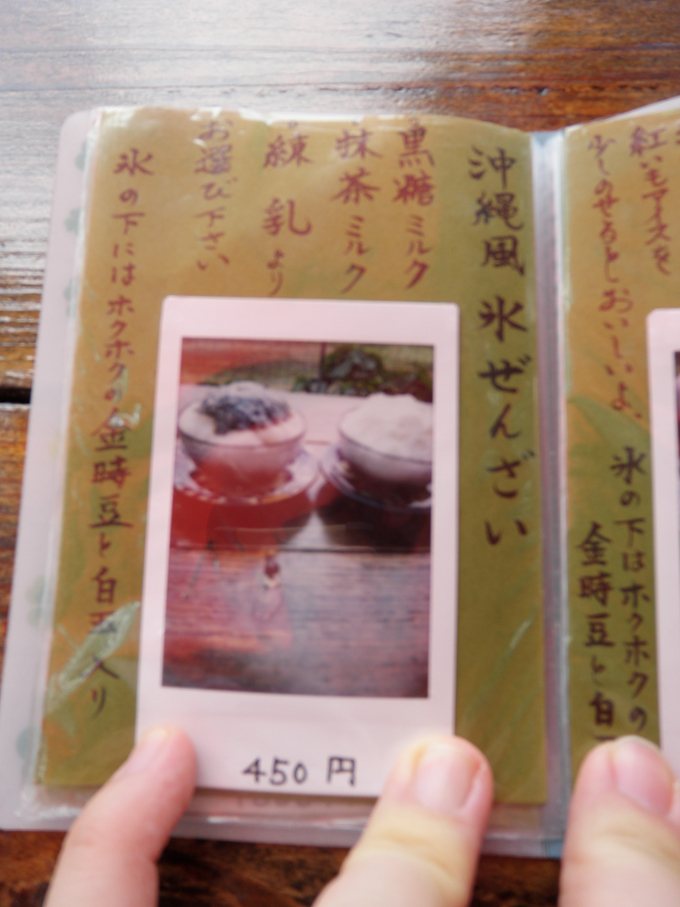 紅いもアイスを
少しのせるとおいしいよ、
氷の下はホクホクの
金時豆と白
沖縄風 氷ぜんざい
黒糖ミルク
抹茶ミルク
練乳より
お選び下さい
氷の下にはホクホクの金時豆と白玉入り
450円